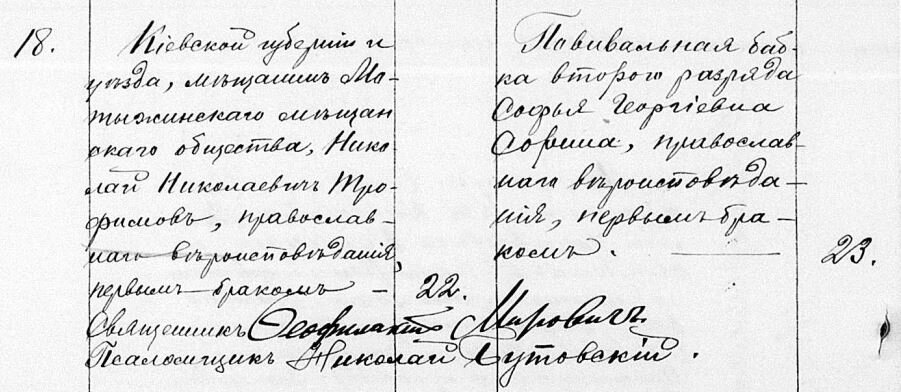 18.
Кіевской губерніи и
уѣзда, мѣщанинъ Мо-
тыжинскаго мѣщан
скаго общества, Нико-
лай Николаевичъ Тро-
фимовъ, православ-
наго вѣроисповѣданія,
первымъ бракомъ –
22.
Повивальная баб-
ка второго разряда
Софья Георгіевна
Сорина, православ-
наго вѣроисповѣда-
нія, первымъ бра-
комъ.
23.
Священникъ Ѳеофилактъ Мировичъ
Псаломщикъ Николай Бутовскій.